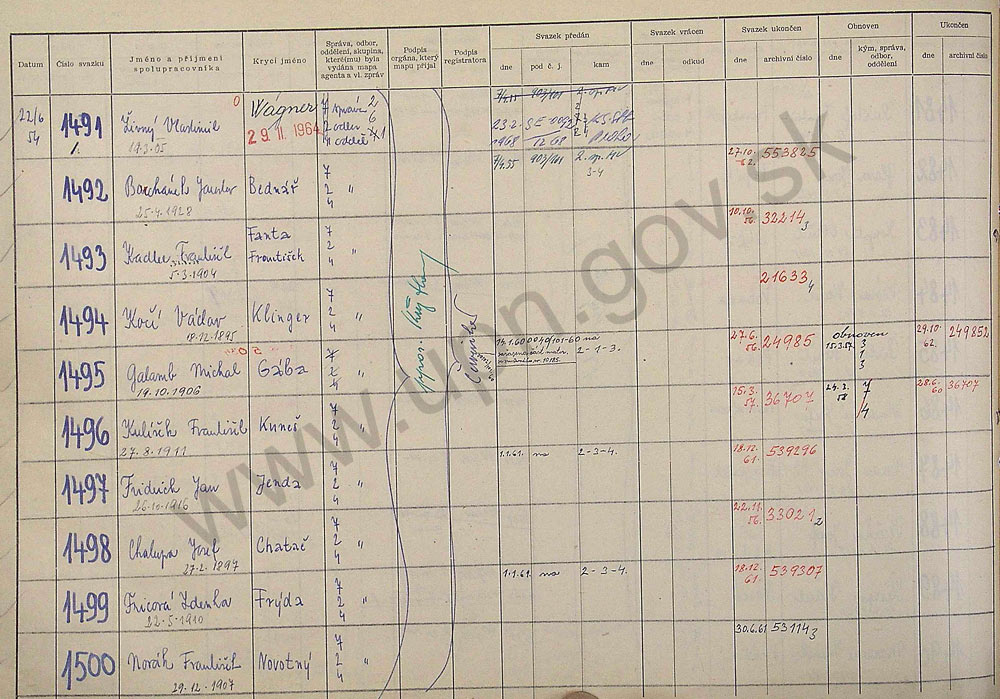 Datum
Číslo svazku
Jméno a příjmení
spolupracovníka
Krycí jméno
Správa, odbor,
oddělení, skupina,
které(mu) byla
vydána mapa
agenta a vl. zpráv
Podpis
orgána, který
mapu přijal
Podpis
registratora
Svazek předán
dne
pod č. j.
kam
Svazek vrácen
dne
odkud
Svazek ukončen
dne
archivní číslo
Obnoven
dne
kým, správa,
odbor,
oddělení
Ukončen
dne
archivní číslo
22/6
54
1491
Živný Vlastimil
Wágner
29. 11. 1964
7 správa 2
2 odbor 6
23.2.
1968
7/4.55 903/61 2. op.
3-4
27.10.
62.
553825
1492
Jaroslav
25.4.1928
Bednář
7
2 "
4
10.10.
56.
32214 3
1493
Kadlec František
5.3.1904
Fanta
František
7
2 "
4
21633 4
1494
Kočí Václav
18.12.1895
Klinger
7
2 "
4
27.6.
56.
24985
obnoven
15.3.57.
3
1
3
29.10.
62.
249852
1495
Galamb Michal
19.10.1906
Gába
7
2 "
4
2-1-3.
15.3.
57.
36707
24.2.
58
7
7
4
28.6.
60
36707
1496
Kulíšek František
27.8.1911
Kuneš
7
2 "
4
1.1.61. na 2-3-4.
18.12.
61.
539296
1497
Fridrich Jan
26.10.1916
Jenda
7
2 "
4
22.11.
56.
33021 2
1498
Chalupa Josef
27.2.1897
Chatač
7
2 "
4
1.1.61. na 2-3-4.
18.12.
61.
539307
1499
Fricová Zdenka
22.5.1910
Frýda
7
2 "
4
30.6.61 53114 3
1500
Novák František
29.12.1907
Novotný
7
2 "
4
www.upn.gov.sk